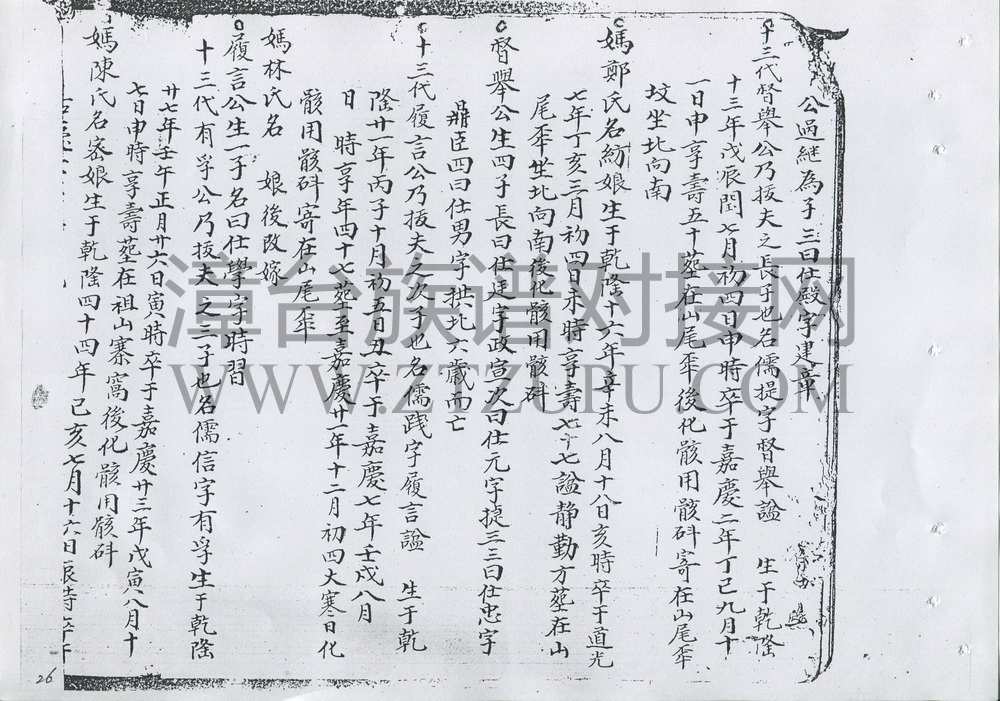 公過継為子三曰仕殿字建章
十三代督舉公乃拔夫之長子也名儒提字督舉謚 生于乾隆
十三年戊辰閏七月初四日申時卒于嘉慶二年丁巳九月十
一日申享壽五十塟在山尾 後化骸用骸䂖寄在山尾
坟坐北向南
媽鄭氏名紡娘生于乾隆十六年辛未八月十八日亥時卒于道光
七年丁亥三月初四日未時享壽七十七謚靜勤方塟在山
尾 坐北向南後化骸用骸䂖
督舉公生四子長曰仕廷字政宣次曰仕元字捷三三曰仕忠字
鼎臣四曰仕男字拱北六歲而亡
十三代履言公乃拔夫之次子也名儒踐字履言謚 生于乾
隆廿一年丙子十月初五日丑 卒于嘉慶七年壬戌八月
日 時享年四十七 至嘉慶廿一年十二月初四大寒日化
骸用骸䂖寄在山尾
媽林氏名 娘後改嫁
履言公生一子名曰仕學字時習
十三代有孚公乃拔夫之三子也名儒信字有孚生于乾隆
廿七年壬午正月廿六日寅時卒于嘉慶廿三年戊寅八月十
七日申時享壽 塟在祖山寨窩後化骸用骸䂖
媽陳氏名密娘生于乾隆四十四年己亥七月十六日辰時卒于
漳台族谱对接网
WWW.ZTZUPU.COM
26